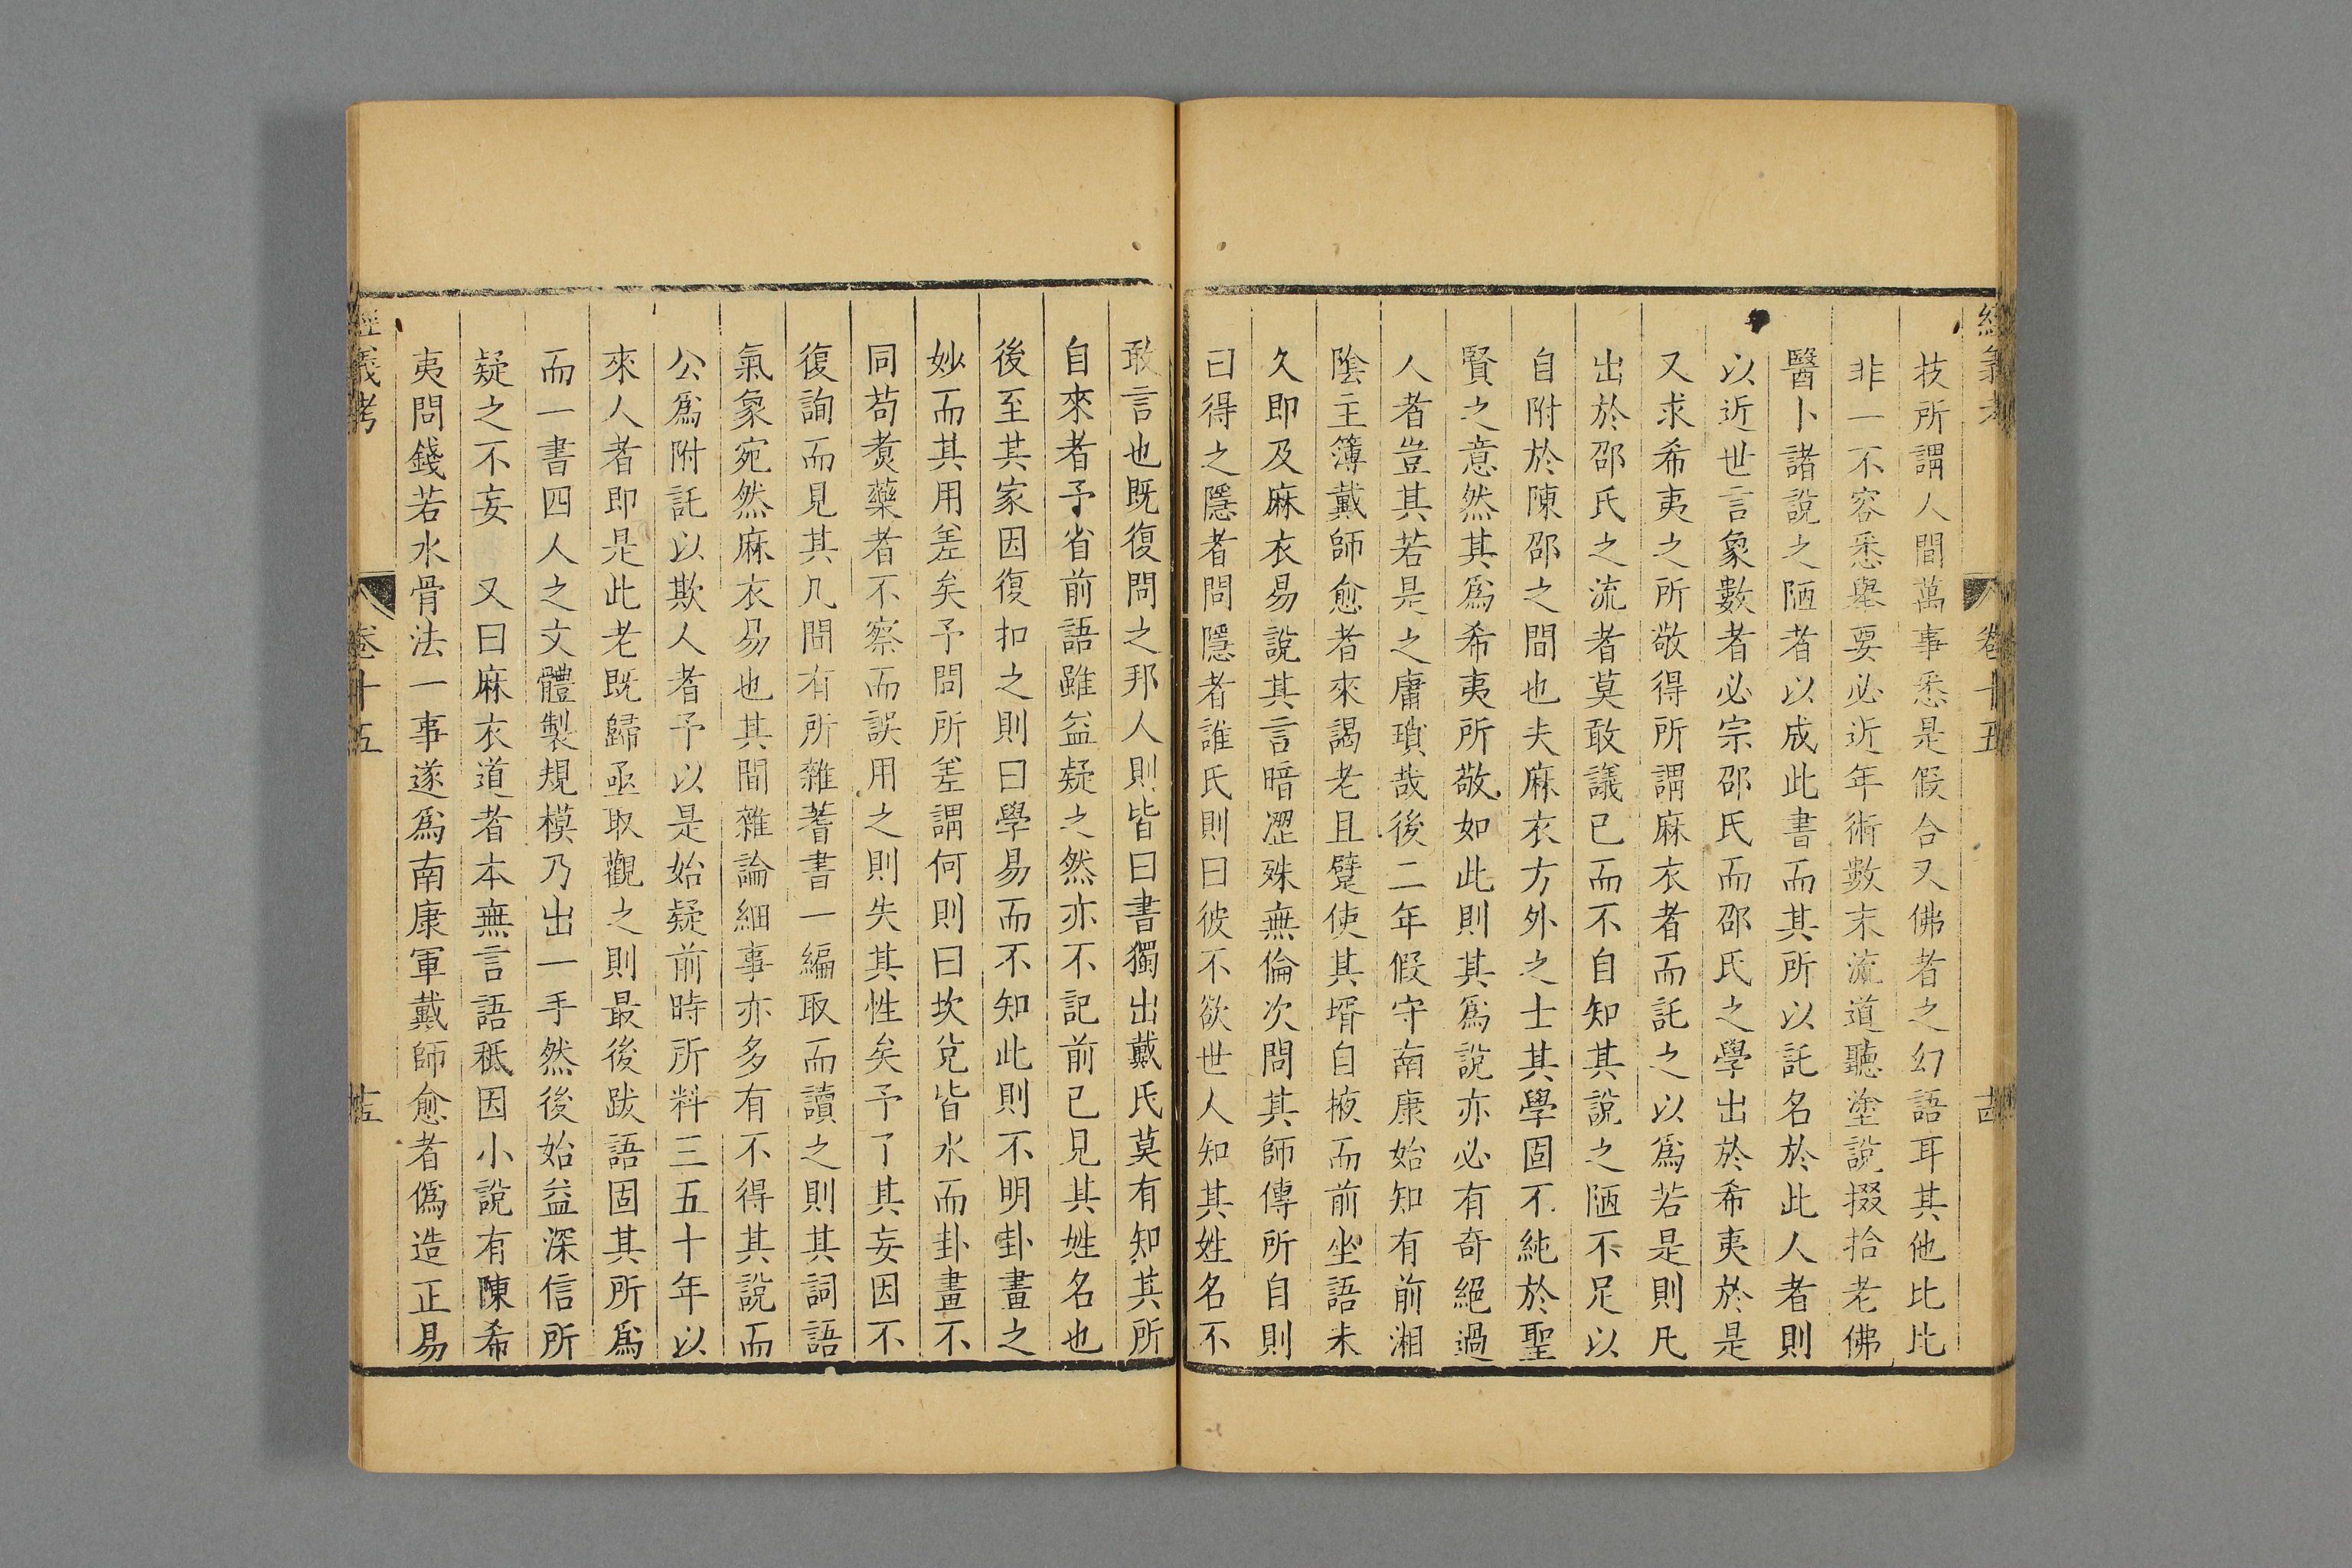 經義考
卷十五
技所謂人間萬事悉是假合又佛者之幻語耳其他比比
非一不容悉舉要必近年術數末流道聽塗說掇拾老佛
醫卜諸說之陋者以成此書而其所以託名於此人者則
以近世言象數者必宗邵氏而邵氏之學出於希夷於是
又求希夷之所敬得所謂麻衣者而託之以爲若是則凡
出於邵氏之流者莫敢議已而不自知其說之陋不足以
自附於陳邵之間也夫麻衣方外之士其學固不純於聖
賢之意然其爲希夷所敬如此則其爲說亦必有奇絕過
人者豈其若是之庸瑣哉後二年假守南康始知有前湘
陰主簿戴師愈者來謁老且躄使其壻自掖而前坐語未
久即及麻衣易說其言暗澀殊無倫次問其師傳所自則
曰得之隱者問隱者誰氏則曰彼不欲世人知其姓名不
敢言也既復問之邦人則皆曰書獨出戴氏莫有知其所
自來者予省前語雖益疑之然亦不記前已見其姓名也
後至其家因復扣之則曰學易而不知此則不明卦畫之
妙而其用差矣予問所差謂何則曰坎兌皆水而卦畫不
同苟煮藥者不察而誤用之則失其性矣予了其妄因不
復詢而見其几間有所雜著書一編取而讀之則其詞語
氣象宛然麻衣易也其間雜論細事亦多有不得其說而
公爲附託以欺人者予以是始疑前時所料三五十年以
來人者即是此老既歸亟取觀之則最後跋語固其所爲
而一書四人之文體製規模乃出一手然後始益深信所
疑之不妄　又曰麻衣道者本無言語秪因小說有陳希
夷問錢若水骨法一事遂爲南康軍戴師愈者僞造正易
經義考
卷十五